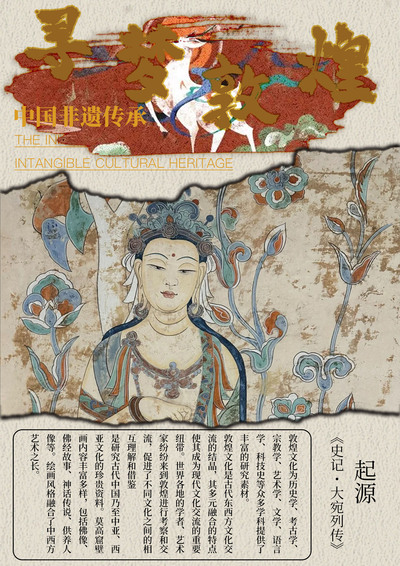 寻梦敦煌
中国非遗传承
THE IN
INTANGIBLE CULTURAL HERITAGE
起源
《史记·大宛列传》
敦煌文化为历史学、考古学、
宗教学、艺术学、文学、语言
学、科技史等众多学科提供了
丰富的研究素材。
敦煌文化是古代东西方文化交
流的结晶，其多元融合的特点
使其成为现代文化交流的重要
纽带。世界各地的学者、艺术
家纷纷来到敦煌进行考察和交
流，促进了不同文化之间的相
互理解和借鉴
是研究古代中国乃至中亚、西
亚文化的珍贵资料。莫高窟壁
画内容丰富多样，包括佛像、
佛经故事、神话传说、供养人
像等。绘画风格融合了中西方
艺术之长。